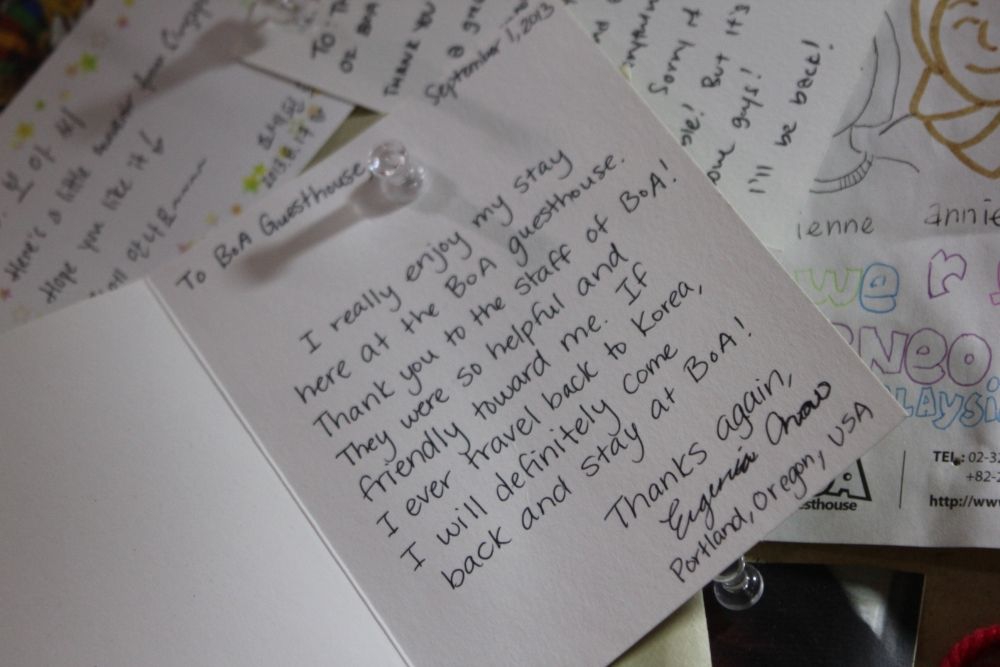 September 1, 2013
To BoA Guesthouse,
I really enjoy my stay
here at the BoA guesthouse.
Thank you to the staff of BoA!
They were so helpful and
friendly toward me. If
I ever travel back to Korea,
I will definitely come
back and stay at BoA!
Thanks again,
Eugenia
Portland, Oregon, USA
Here's a little
Hope you like it
2013.8.17
TO
THANK YOU
Sorry if
But it's
guys!
I'll be back!
ienne
annie
we r
NEO
LAYSI
TEL: 02-32
+82-2
http://www
esthouse